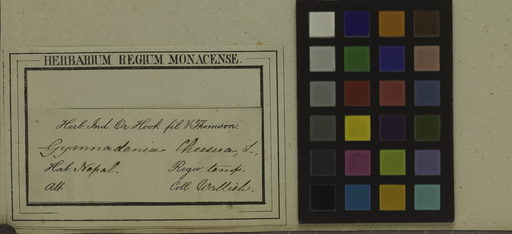 HERBARIUM REGIUM MONACENSE.
Herb. Ind. Or. Hook. fil. & Thomson.
Gymnadenia Chusua, L.
Hab. Nepal. Regio temp.
Alt. Coll. Wallich.